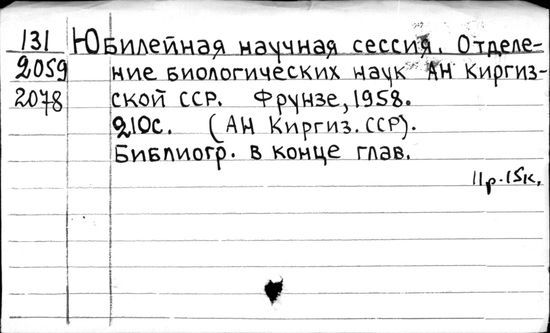 131 Юбилейная научная сессия. Отделе-
2059 ние биологических наук АН Киргиз-
2078 ской ССР. Фрунзе, 1958.
210с. (АН Киргиз. ССР).
Библиогр. в конце глав.
11р.15к.